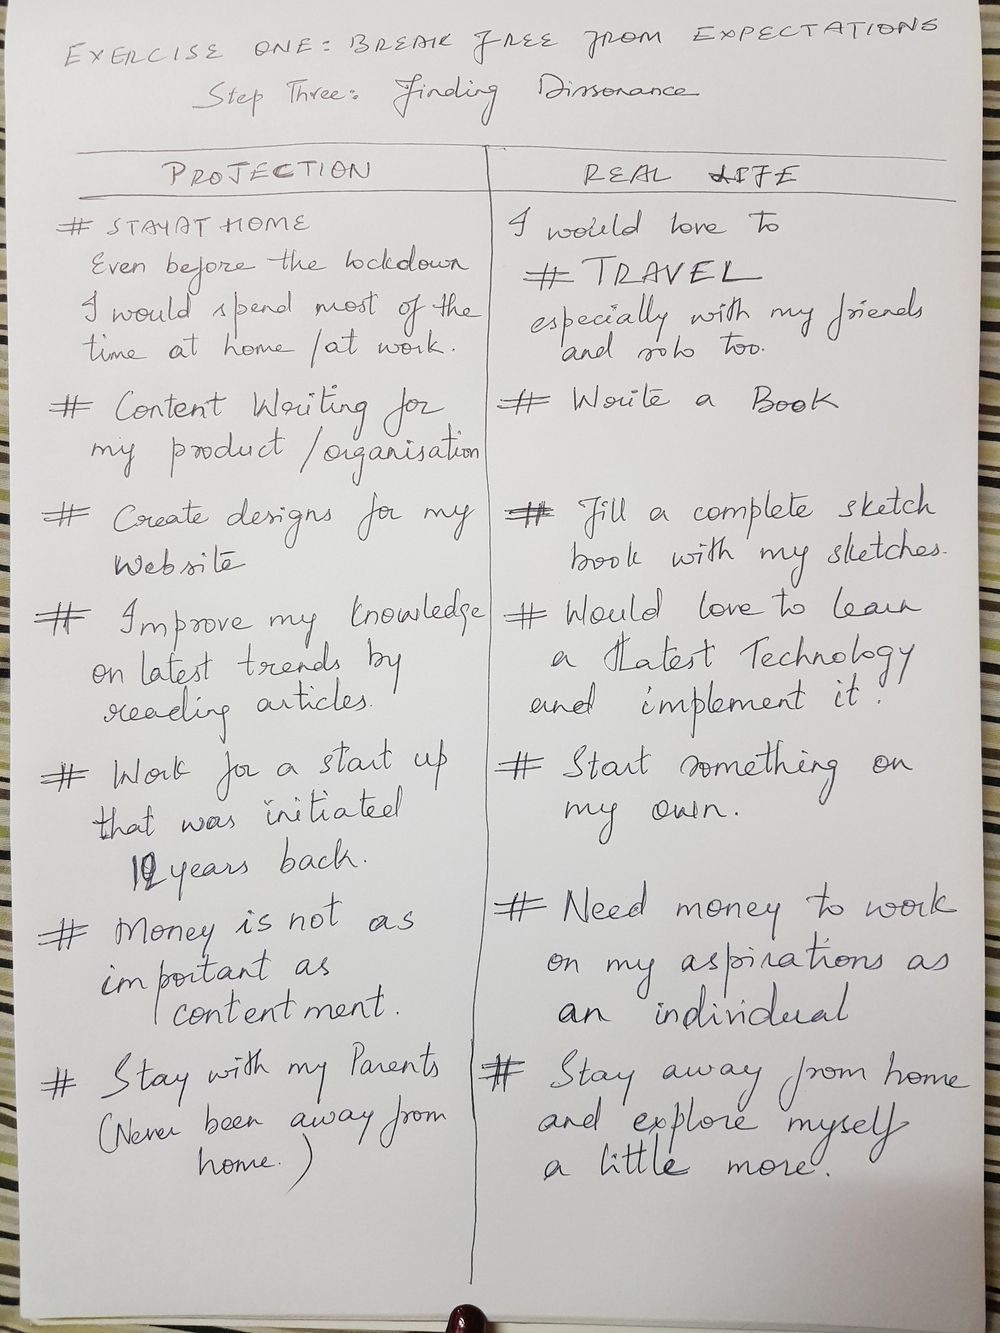 EXERCISE ONE: BREAK FREE FROM EXPECTATIONS
Step Three: Finding Dissonance
PROJECTION
# STAY AT HOME
Even before the lockdown
I would spend most of the
time at home / at work.
# Content Writing for
my product / organisation
# Create designs for my
Website
# Improve my knowledge
on latest trends by
reading articles.
# Work for a start up
that was initiated
12 years back.
# Money is not as
important as
contentment.
# Stay with my Parents
(Never been away from
home.)
REAL LIFE
I would love to
# TRAVEL
especially with my friends
and solo too.
# Write a Book
# Fill a complete sketch
book with my sketches.
# Would love to learn
a Latest Technology
and implement it.
# Start something on
my own.
# Need money to work
on my aspirations as
an individual
# Stay away from home
and explore myself
a little more.